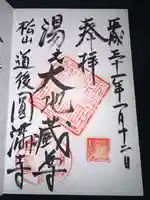 平成二十一年一月十二日
奉拝
湯之大地蔵尊
松山道後圓満寺